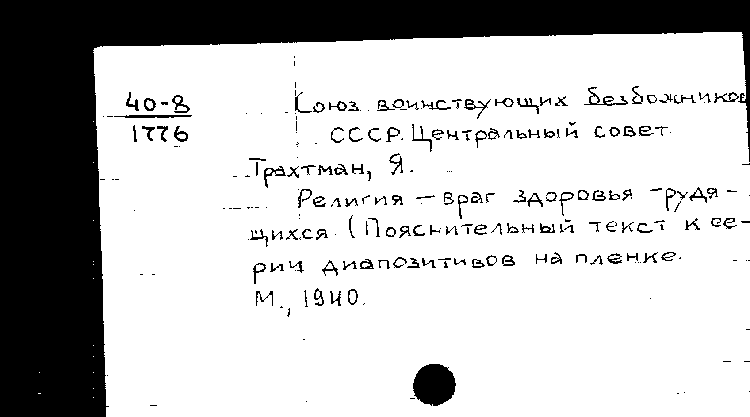 40-8
1776
Союз воинствующих безбожников
СССР. Центральный совет.
Трахтман, Я.
Религия – враг здоровья трудя-
щихся (Пояснительный текст к се-
рии диапозитивов на пленке.
М., 1940.